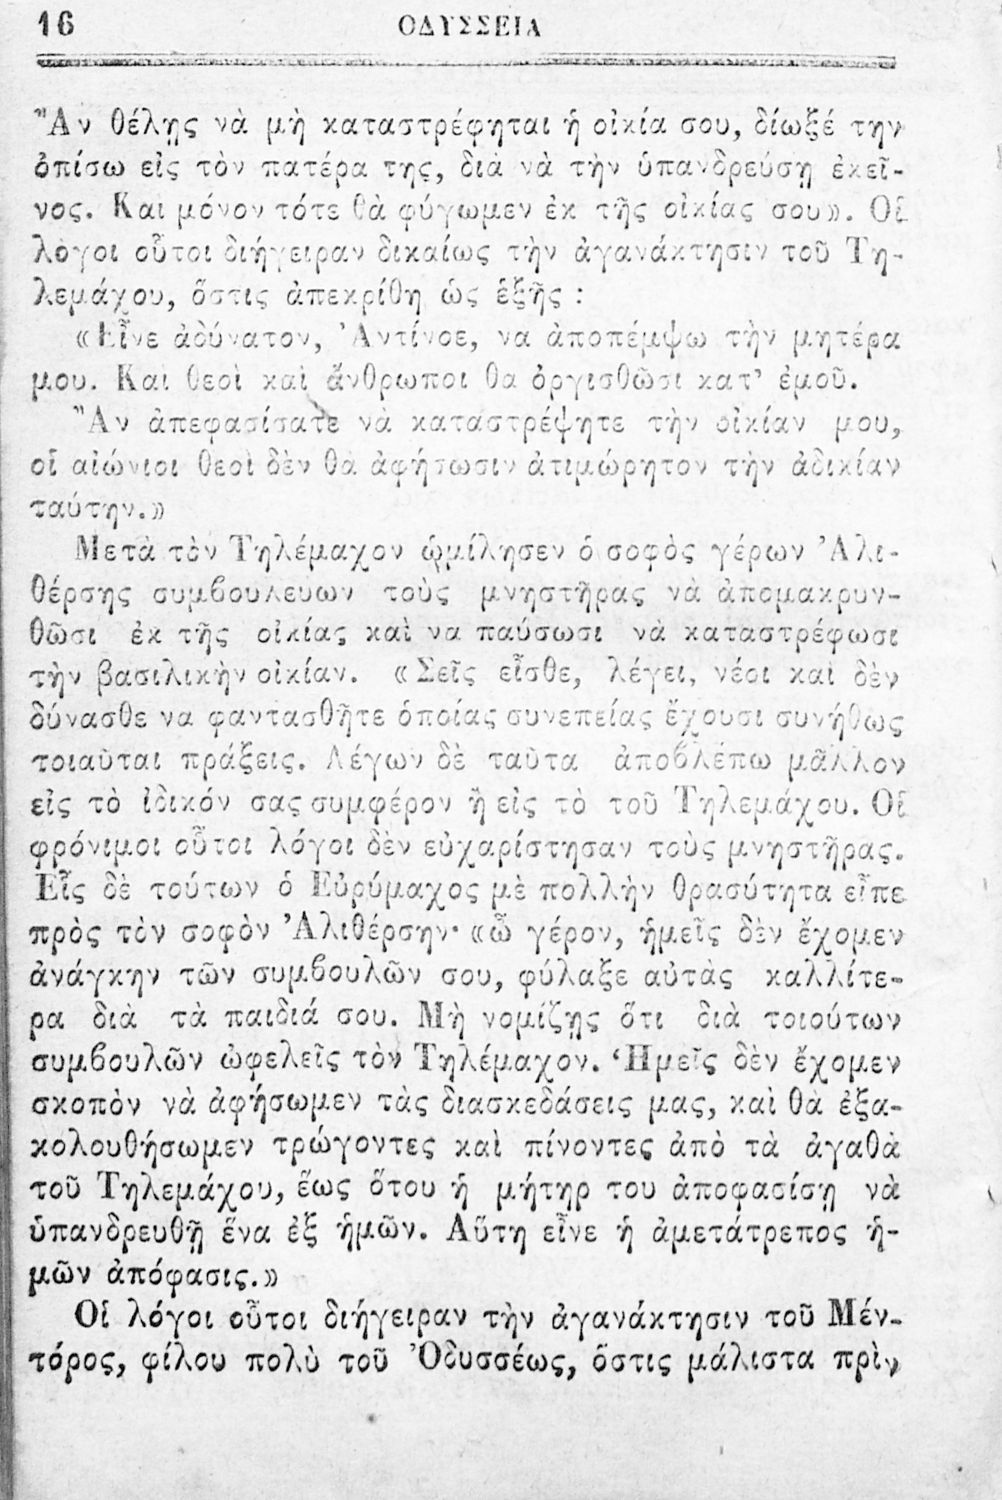 16
ΟΔΥΣΣΕΙΑ
Ἂν θέλῃς νὰ μὴ καταστρέφηται ἡ οἰκία σου, δίωξέ την
ὀπίσω εἰς τὸν πατέρα της, διὰ νὰ τὴν ὑπανδρεύσῃ ἐκεῖ-
νος. Καὶ μόνον τότε θὰ φύγωμεν ἐκ τῆς οἰκίας σου». Οἱ
λόγοι οὗτοι διήγειραν δικαίως τὴν ἀγανάκτησιν τοῦ Τη-
λεμάχου, ὅστις ἀπεκρίθη ὡς ἑξῆς :
«Εἶνε ἀδύνατον, Ἀντίνοε, να ἀποπέμψω τὴν μητέρα
μου. Καὶ θεοὶ καὶ ἄνθρωποι θα ὀργισθῶσι κατ’ ἐμοῦ.
Ἂν ἀπεφασίσατε νὰ καταστρέψητε τὴν οἰκίαν μου,
οἱ αἰώνιοι θεοὶ δὲν θὰ ἀφήσωσιν ἀτιμώρητον τὴν ἀδικίαν
ταύτην.»
Μετὰ τὸν Τηλέμαχον ὡμίλησεν ὁ σοφὸς γέρων Ἀλι-
θέρσης συμβουλευων τοὺς μνηστῆρας νὰ ἀπομακρυν-
θῶσι ἐκ τῆς οἰκίας καὶ να παύσωσι νὰ καταστρέφωσι
τὴν βασιλικὴν οἰκίαν. «Σεῖς εἶσθε, λέγει, νέοι καὶ δὲν
δύνασθε να φαντασθῆτε ὁποίας συνεπείας ἔχουσι συνήθως
τοιαῦται πράξεις. Λέγων δὲ ταῦτα ἀποβλέπω μᾶλλον
εἰς τὸ ἰδικόν σας συμφέρον ἢ εἰς τὸ τοῦ Τηλεμάχου. Οἱ
φρόνιμοι οὗτοι λόγοι δὲν εὐχαρίστησαν τοὺς μνηστῆρας.
Εἷς δὲ τούτων ὁ Εὐρύμαχος μὲ πολλὴν θρασύτητα εἶπε
πρὸς τὸν σοφὸν Ἀλιθέρσην· «ὦ γέρον, ἡμεῖς δὲν ἔχομεν
ἀνάγκην τῶν συμβουλῶν σου, φύλαξε αὐτὰς καλλίτε-
ρα διὰ τὰ παιδιά σου. Μὴ νομίζῃς ὅτι διὰ τοιούτων
συμβουλῶν ὠφελεῖς τὸν Τηλέμαχον. Ἡμεῖς δὲν ἔχομεν
σκοπὸν νὰ ἀφήσωμεν τὰς διασκεδάσεις μας, καὶ θὰ ἐξα-
κολουθήσωμεν τρώγοντες καὶ πίνοντες ἀπὸ τὰ ἀγαθὰ
τοῦ Τηλεμάχου, ἕως ὅτου ἡ μήτηρ του ἀποφασίσῃ νὰ
ὑπανδρευθῇ ἕνα ἐξ ἡμῶν. Αὕτη εἶνε ἡ ἀμετάτρεπος ἡ-
μῶν ἀπόφασις.»
Οἱ λόγοι οὗτοι διήγειραν τὴν ἀγανάκτησιν τοῦ Μέν-
τόρος, φίλου πολὺ τοῦ Ὀδυσσέως, ὅστις μάλιστα πρὶν